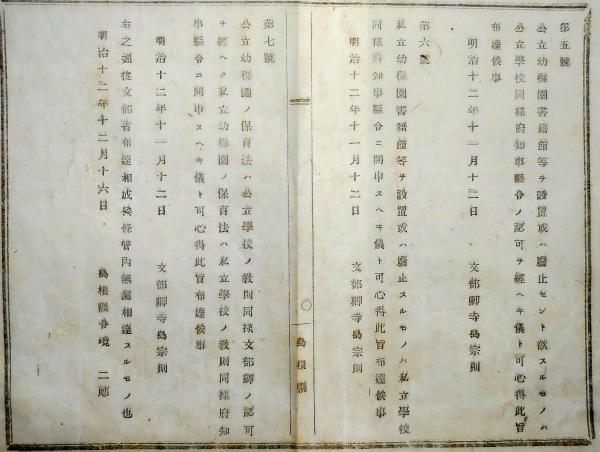 第五號
公立幼稚園書籍館等ヲ設置或ハ廢止セント欲スルモノハ
公立學校同樣府知事縣令ノ認可ヲ經ヘキ儀ト可心得此旨
布達候事
明治十二年十一月十二日 文部卿寺島宗則
第六號
私立幼稚園書籍館等ヲ設置或ハ廢止スルモノハ私立學校
同樣府知事縣令ニ開申スヘキ儀ト可心得此旨布達候事
明治十二年十一月十二日 文部卿寺島宗則
○ 島根縣
第七號
公立幼稚園ノ保育法ハ公立學校ノ教則同樣文部卿ノ認可
ヲ經ヘク私立幼稚園ノ保育法ハ私立學校ノ教則同樣府知
事縣令ニ開申スヘキ儀ト可心得此旨布達候事
明治十二年十一月十二日 文部卿寺島宗則
右之通從文部省布達相成候條管內無漏相達スルモノ也
明治十二年十二月十六日 島根縣令境 二郎